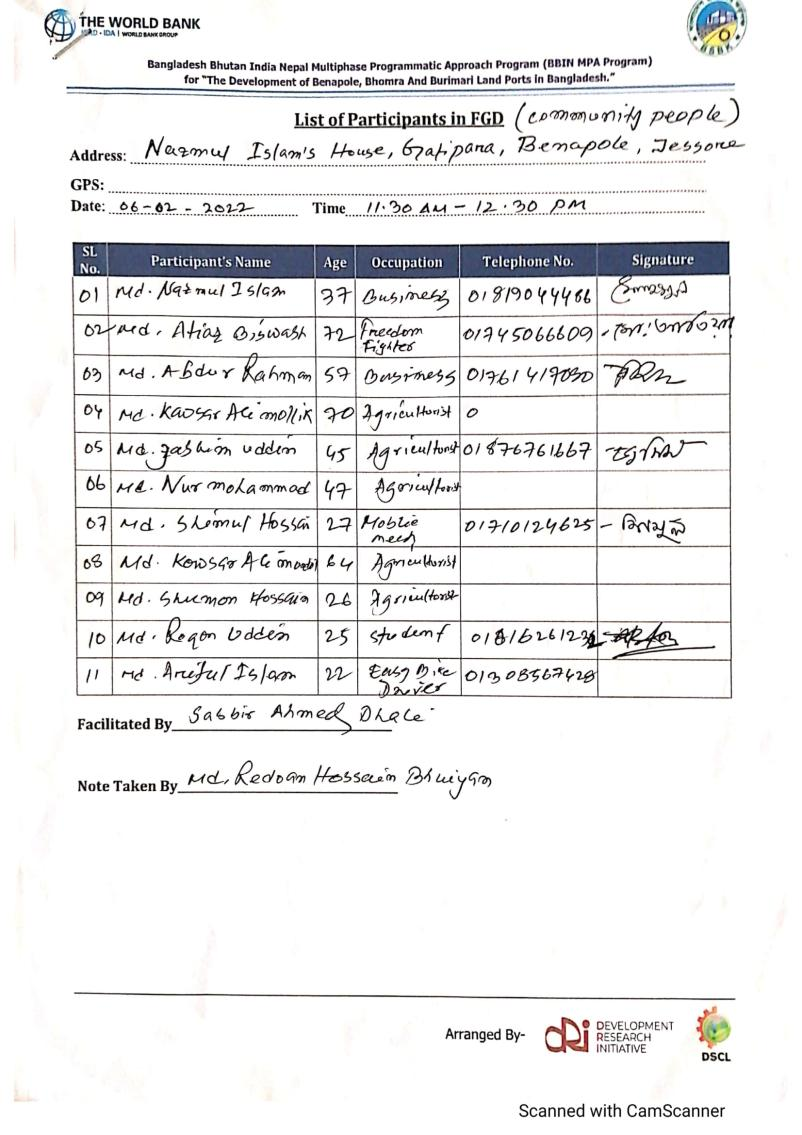 THE WORLD BANK
IBRD • IDA | WORLD BANK GROUP
Bangladesh Bhutan India Nepal Multiphase Programmatic Approach Program (BBIN MPA Program)
for "The Development of Benapole, Bhomra And Burimari Land Ports in Bangladesh."
List of Participants in FGD (community people)
Address: Nazmul Islam's House, Gatipara, Benapole, Jessore
GPS:
Date: 06-02-2022 Time 11.30 AM - 12.30 PM
SL No. Participant's Name Age Occupation Telephone No. Signature
01 Md. Nazmul Islam 37 Business 01819044466
02 Md. Atiaz Biswash 72 Freedom Fighter 01745066609
03 Md. Abdur Rahman 57 Business 01761417030
04 Md. Kawsar Ali mollik 70 Agriculturist 0
05 Md. Jashim Uddin 45 Agriculturist 01876761667
06 Md. Nur mohammad 47 Agriculturist
07 Md. Shimul Hossain 27 Moblie mech 01710124625 - শিমুল
08 Md. Kowsar Ali 64 Agriculturist
09 Md. Shumon Hossain 26 Agriculturist
10 Md. Rogon Uddin 25 Student
11 Md. Ariful Islam 22 Easy Bike Driver 01308567428
Facilitated By Sabbir Ahmed Dhali
Note Taken By Md. Redoan Hossain Bhuiyan
Arranged By- dri DEVELOPMENT
RESEARCH
INITIATIVE
DSCL
Scanned with CamScanner